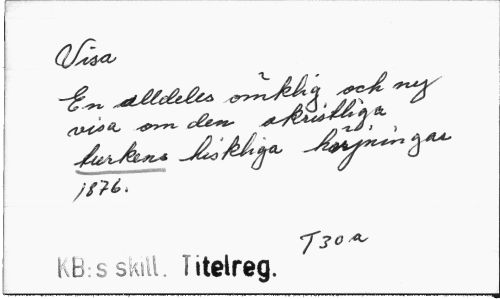 Visa
En alldeles ömklig och ny
visa om den okristliga
turkens hiskliga härjningar
1876.
T30a
KB:s skill. Titelreg.